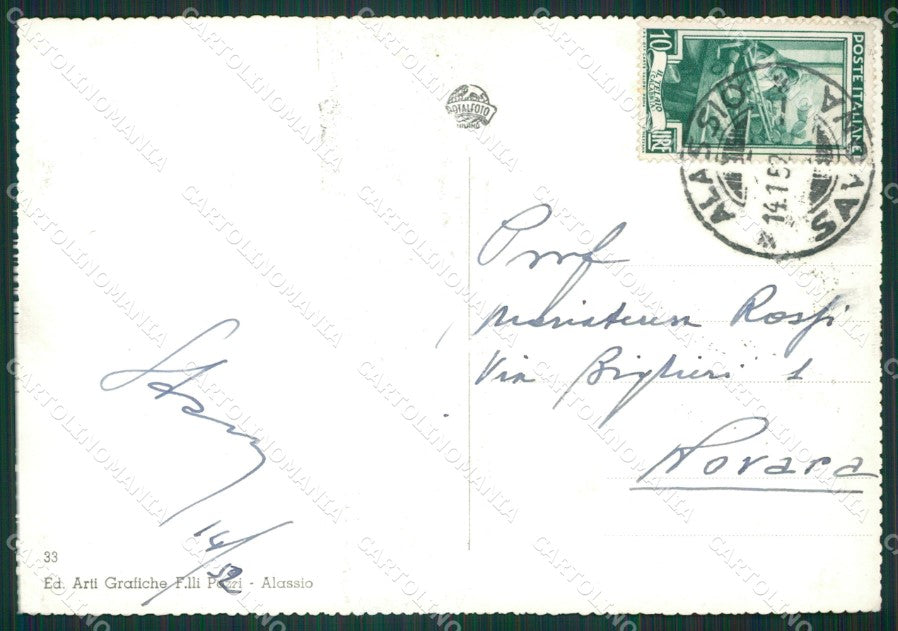 10
LIRE
POSTE ITALIANE
ALASSIO
SAVONA
14.1.52
ROTALFOTO
MILANO
Prof
Mariateresa Rossi
Via Biglieri 1
Novara
14/
52
33
Ed. Arti Grafiche F.lli Pozzi - Alassio
CARTOLINOMANIA